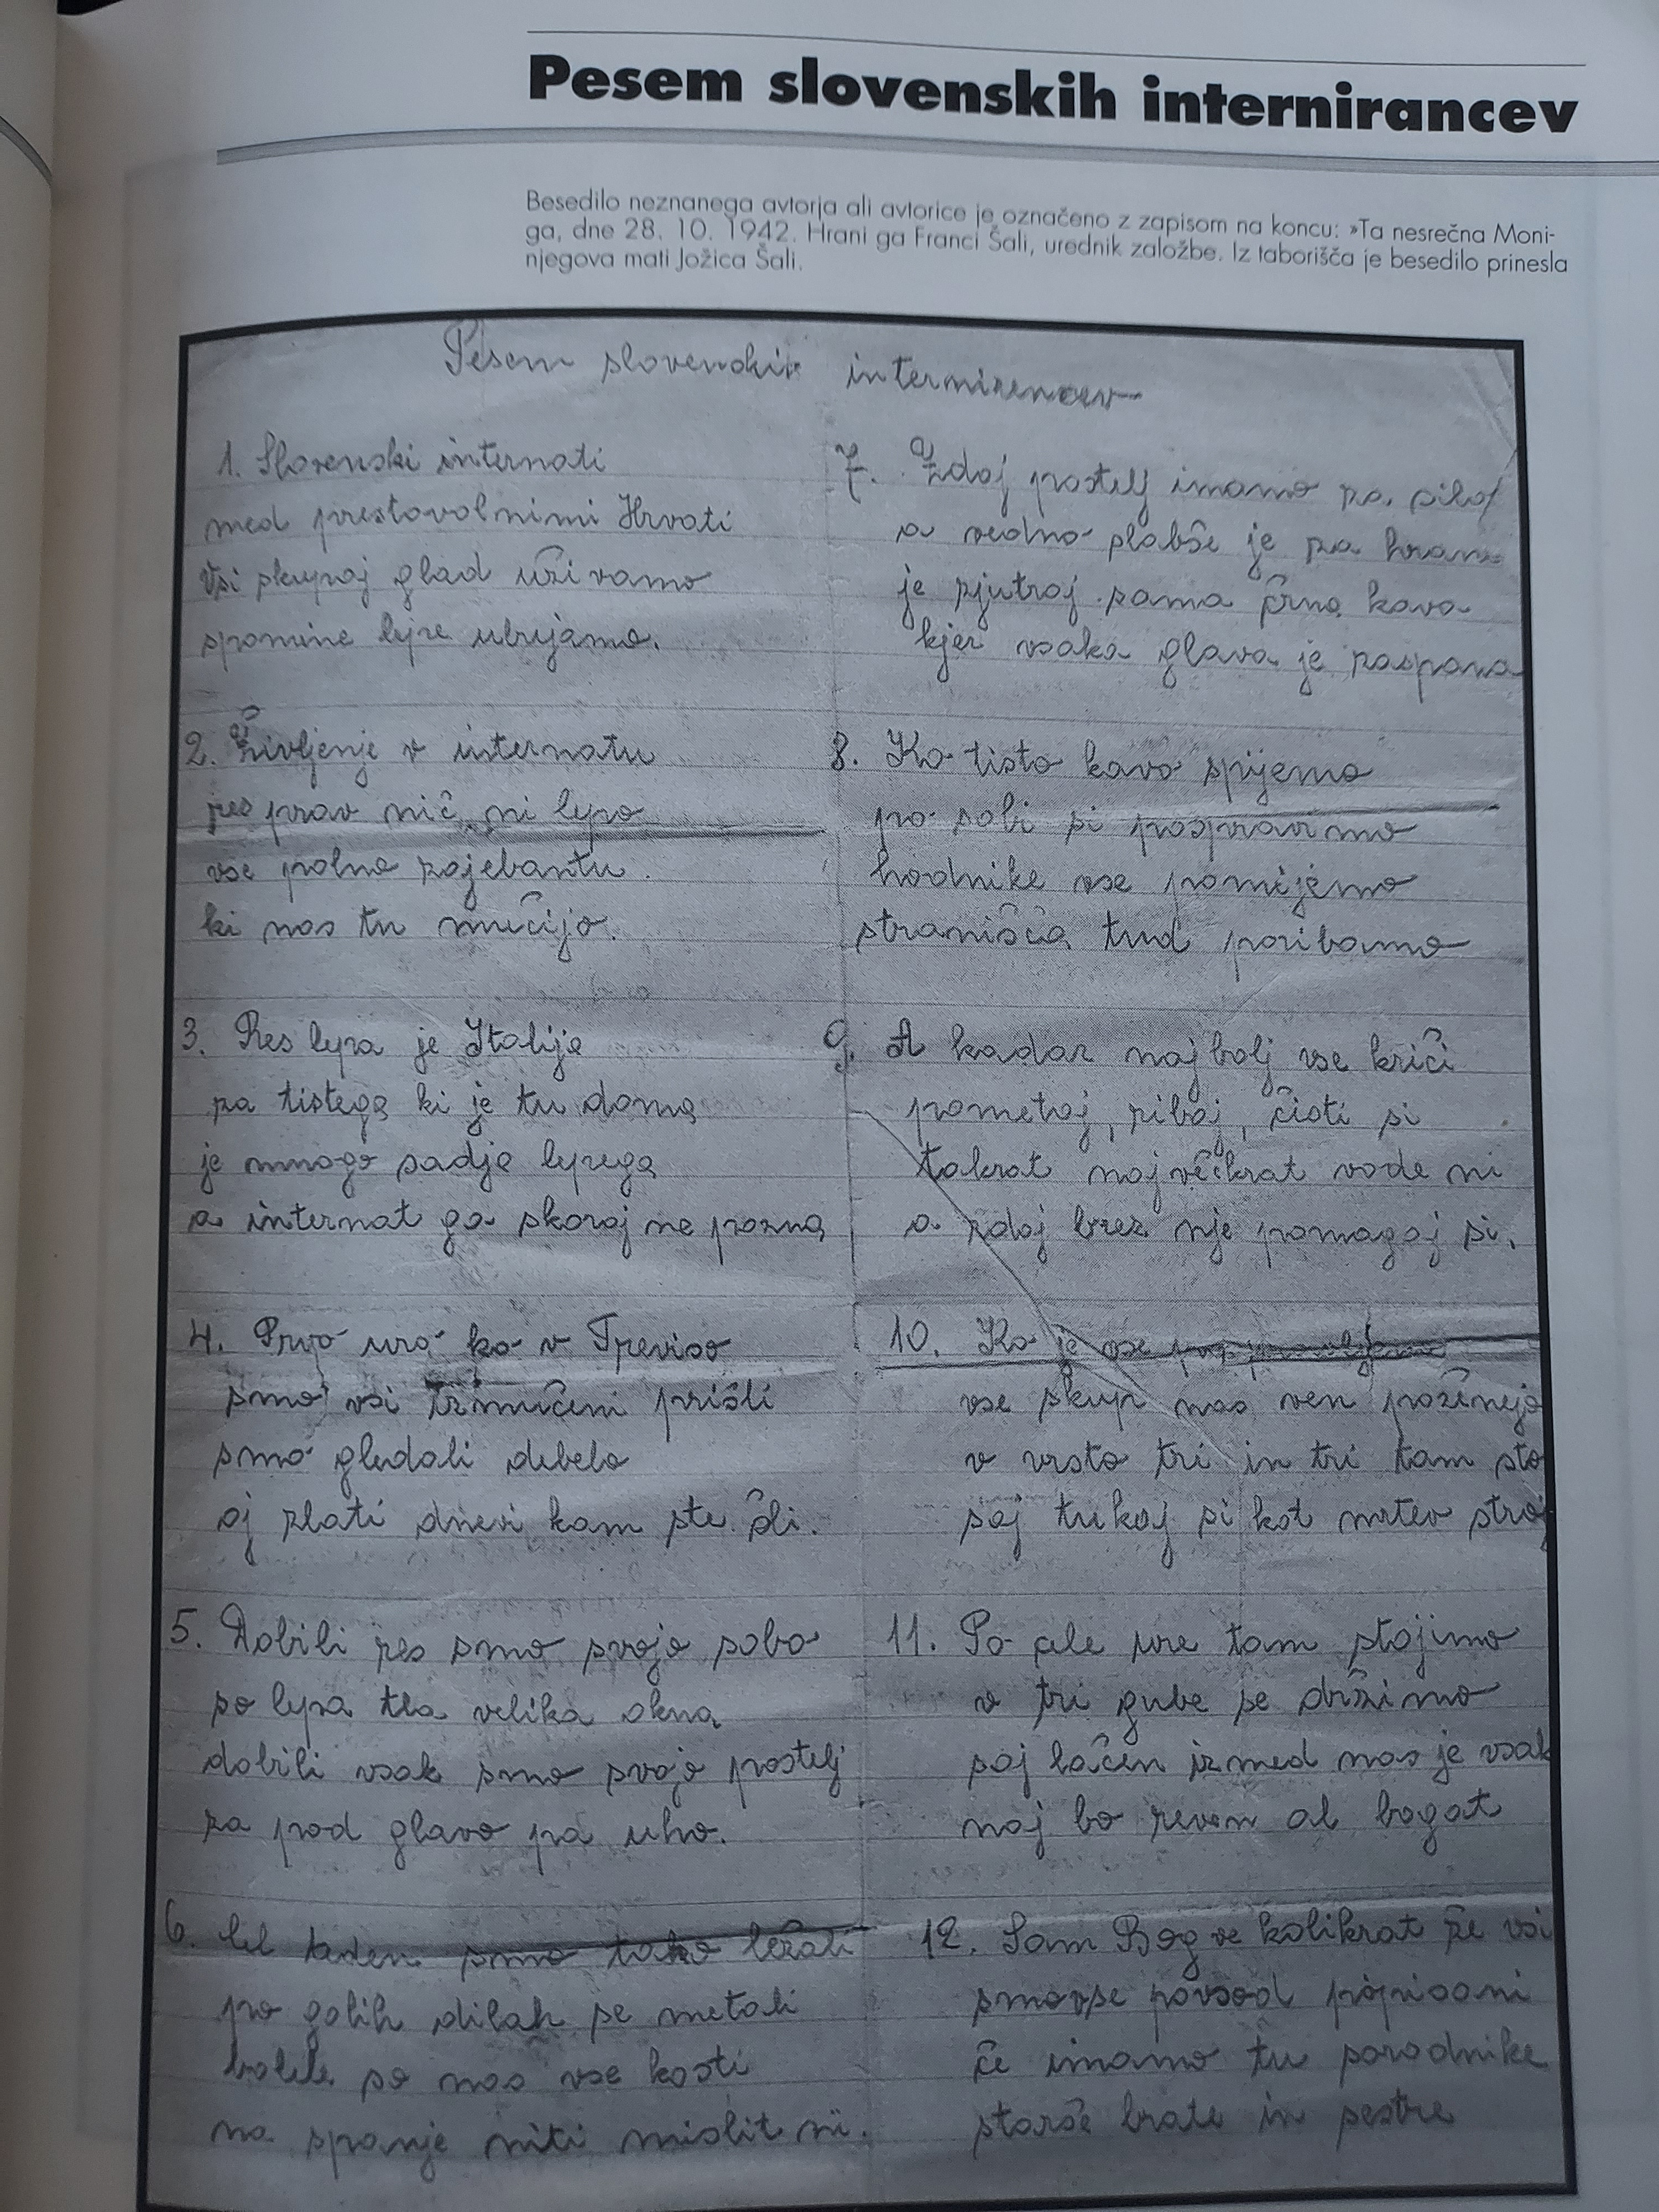 Pesem slovenskih internirancev
Besedilo neznanega avtorja ali avtorice je označeno z zapisom na koncu: »Ta nesrečna Moni-
ga, dne 28. 10. 1942. Hrani ga Franci Šali, urednik založbe. Iz taborišča je besedilo prinesla
njegova mati Jožica Šali.
Pesem slovenskih internirencev
1. Slovenski internati
med prestovolnimi Hrvati
Vsi skupaj glad uživamo
spomine lepe ubujamo.
2. Življenje v internatu
res prav nič ni lepo
vse polno zajebantu
ki nas tu mučijo.
3. Res lepa je Italija
za tistega ki je tu doma
je mnogo sadja lepega
a internat ga skoraj ne pozna
4. Prvo uro ko v Treviso
smo vsi trmučeni prišli
smo gledali debelo
oj zlati dnevi kam ste šli.
5. Dobili res smo svojo sobo
so lepa tla velika okna
dobili vsak smo svojo postelj
za pod glavo pa uho.
6. Cel teden smo tako ležali
po golih dilah se metali
bolele so nas vse kosti
na spanje niti mislit ni.
7. Zdaj postelj imamo za silo
a vedno slabše je za hrano
je zjutraj sama črna kava
kjer vsaka glava je zaspana
8. Ko tisto kavo spijemo
po sobi si pospravimo
hodnike vse pomijemo
stranišča tud poribamo
9. A kadar najbolj vse kriči
pometaj, ribaj, čisti si
takrat največkrat vode ni
a zdaj brez nje pomagaj si.
10. Ko je vse
vse skup nas ven poženejo
v vrsto tri in tri tam sto
saj tukaj si kot mrtev stroj
11. Po cele ure tam stojimo
v tri gube se držimo
saj lačen izmed nas je vsak
naj bo reven al bogat
12. Sam Bog ve kolikrat že vsi
smo vse povsod popisani
če imamo tu sorodnike
starše brate in sestre